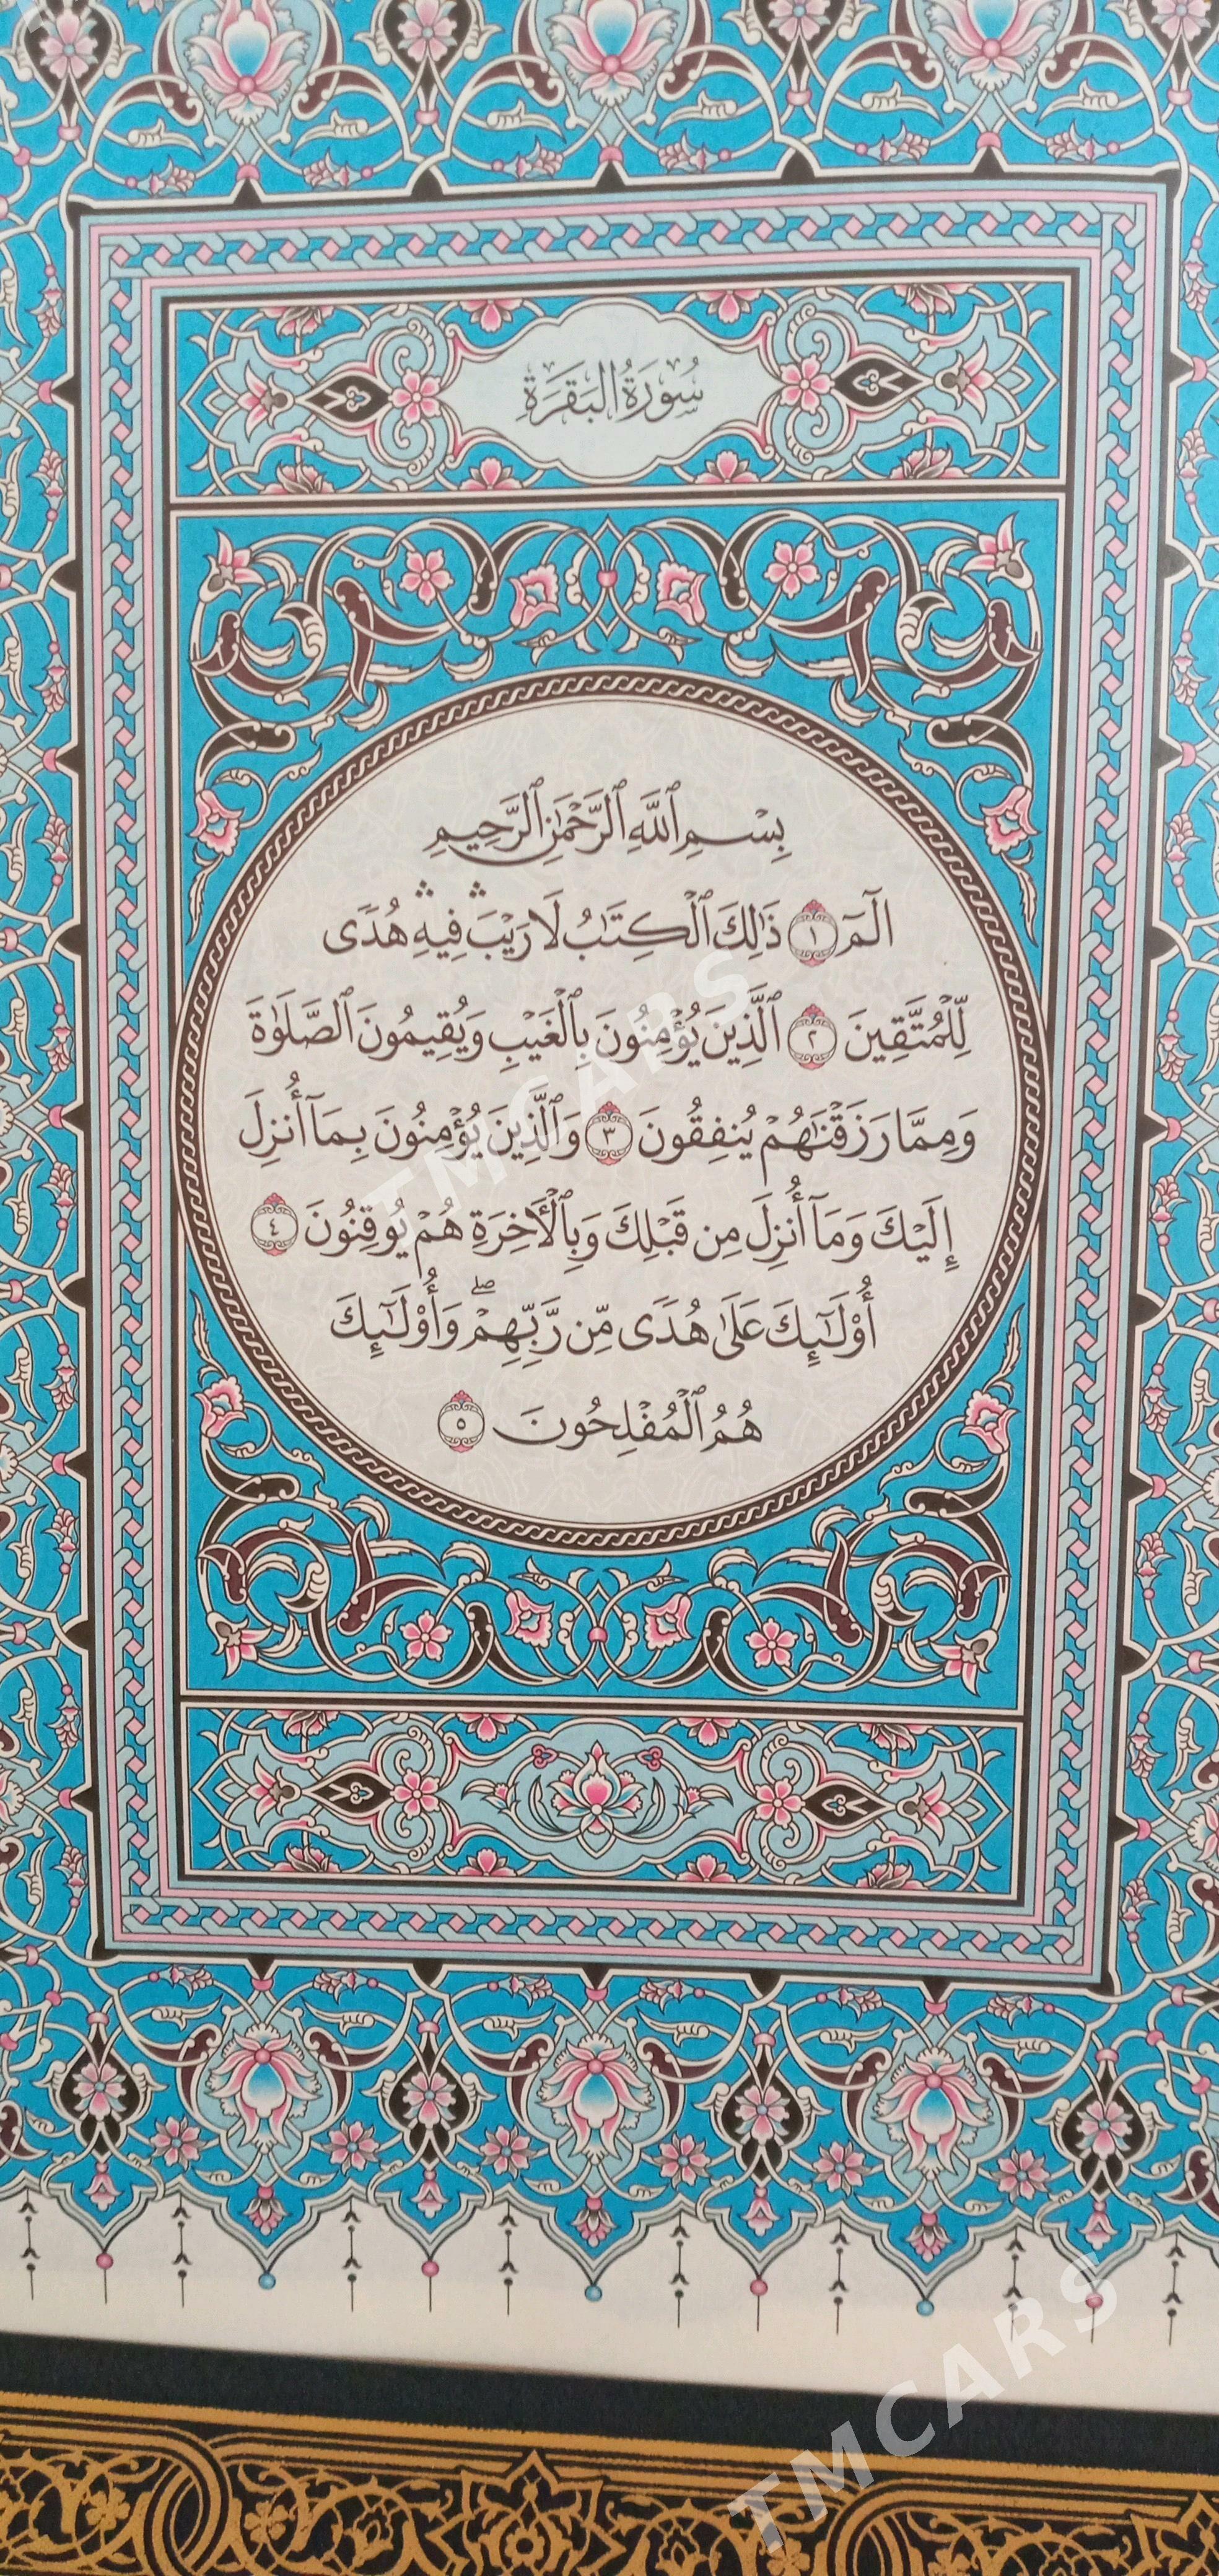 سُورَةُ البَقَرَةِ
بِسْمِ ٱللَّهِ ٱلرَّحْمَٰنِ ٱلرَّحِيمِ
الٓمٓ ١ ذَٰلِكَ ٱلْكِتَٰبُ لَا رَيْبَ ۛ فِيهِ ۛ هُدًى
لِّلْمُتَّقِينَ ٢ ٱلَّذِينَ يُؤْمِنُونَ بِٱلْغَيْبِ وَيُقِيمُونَ ٱلصَّلَوٰةَ
وَمِمَّا رَزَقْنَٰهُمْ يُنفِقُونَ ٣ وَٱلَّذِينَ يُؤْمِنُونَ بِمَآ أُنزِلَ
إِلَيْكَ وَمَآ أُنزِلَ مِن قَبْلِكَ وَبِٱلْأَخِرَةِ هُمْ يُوقِنُونَ ٤
أُو۟لَٰٓئِكَ عَلَىٰ هُدًى مِّن رَّبِّهِمْ ۖ وَأُو۟لَٰٓئِكَ
هُمُ ٱلْمُفْلِحُونَ ٥
TMCARS
TMCARS